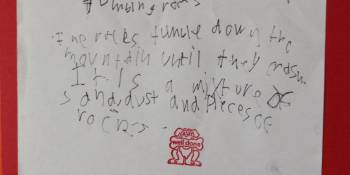 tumbling rocks
The rocks tumble down the
mountain until they
It is a mixture of
sand dust and pieces of
rocks
well done